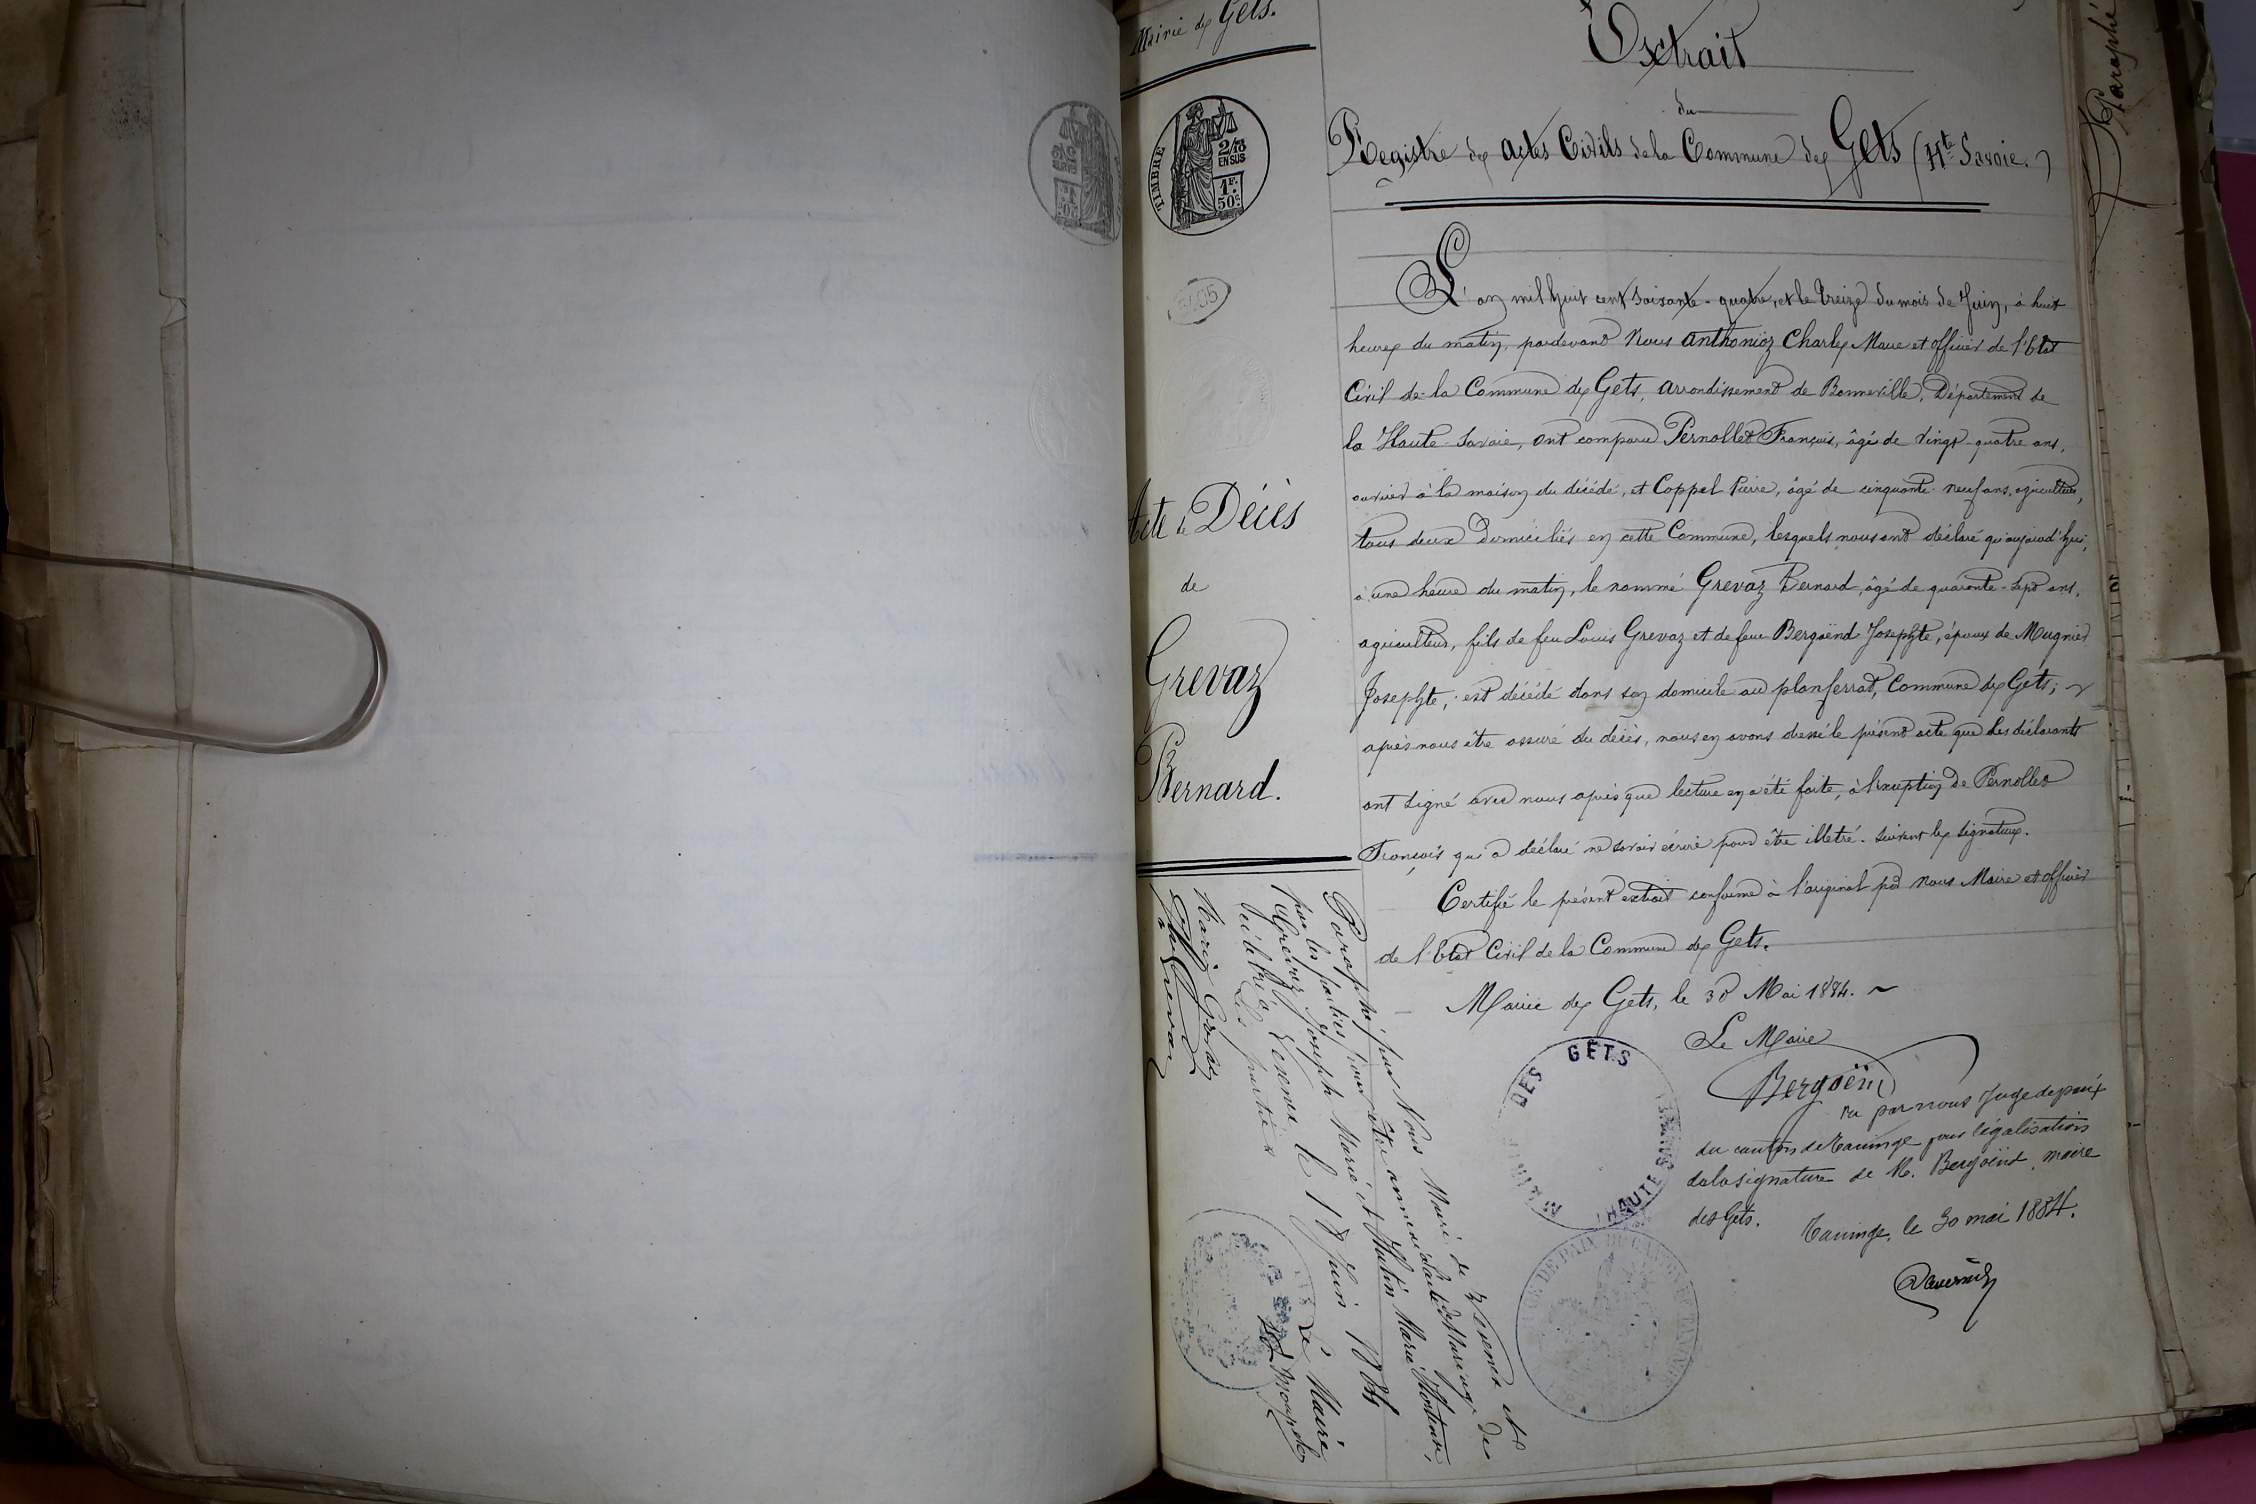 Mairie des Gets.
TIMBRE
2/10
EN SUS
1F.
50c.
Acte de Décès
de
Grevaz
Bernard.
Extrait
du
Registre des actes Civils de la Commune des Gets (Hte Savoie.)
L'an mil huit cent soixante-quatre, et le treize du mois de Juin, à huit
heures du matin, pardevant Nous Anthonioz Charles Maire et officier de l'Etat
Civil de la Commune des Gets, arrondissement de Bonneville, Département de
la Haute-Savoie, ont comparu Pernollet François, âgé de vingt-quatre ans,
ouvrier à la maison du décédé, et Coppel Pierre, âgé de cinquante-neuf ans, agriculteur,
tous deux domiciliés en cette Commune, lesquels nous ont déclaré qu'aujourd'hui,
à une heure du matin, le nommé Grevaz Bernard, âgé de quarante-sept ans,
agriculteur, fils de feu Louis Grevaz et de feue Bergoënd Josephte, époux de Mugnier
Josephte, est décédé dans son domicile au planferrat, Commune des Gets;
après nous être assuré du décès, nous en avons dressé le présent acte que les déclarants
ont signé avec nous après que lecture en a été faite, à l'exception de Pernollet
François qui a déclaré ne savoir écrire pour être illetré. Suivent les signatures.
Certifié le présent extrait conforme à l'original par nous Maire et officier
de l'Etat Civil de la Commune des Gets.
Mairie des Gets, le 30 Mai 1884.
Le Maire
Bergoënd
Vu par nous Juge de paix
du canton de Taninge pour légalisation
de la signature de M. Bergoënd, maire
des Gets.
Taninge, le 30 mai 1884.
DES GETS
HAUTE SAVOIE
Paraphé par Nous Maire de et
par les parties pour être annexé à l'acte de Mariage de
Grevaz Joseph Marie et Hutin Marie
célébré à le 18 Juin 1884
Les parties
Le Maire
Grevaz
Paraphé